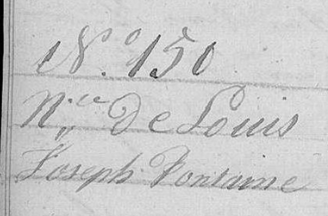 N.° 150
N.ce De Louis
Joseph Fontaine